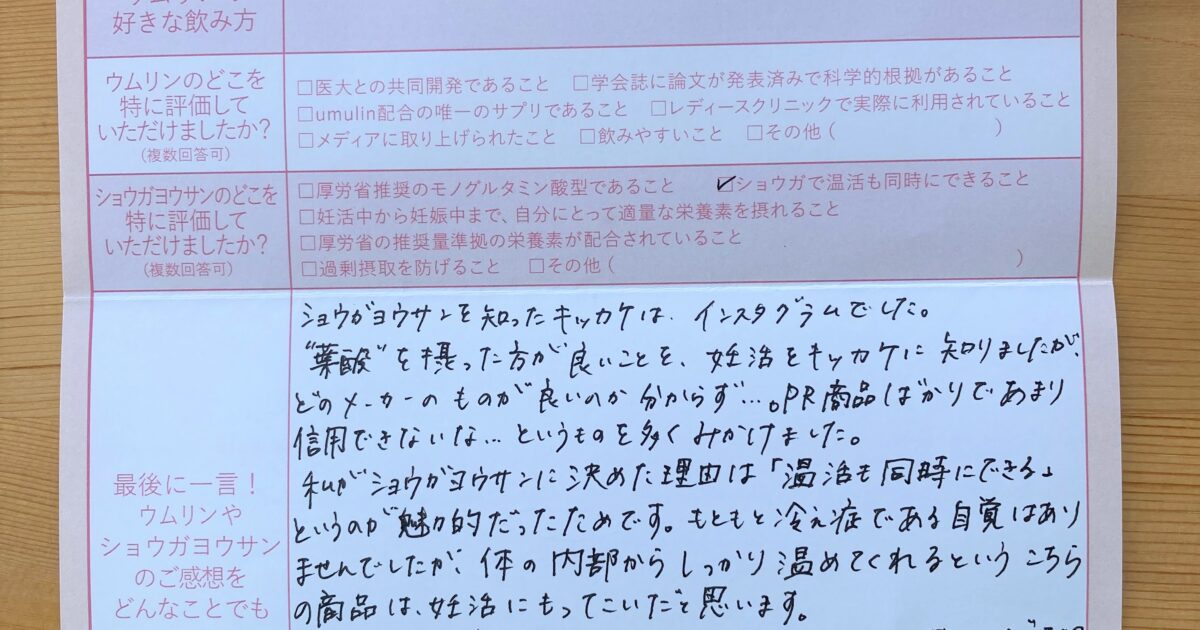 好きな飲み方
ウムリンのどこを
特に評価して
いただけましたか?
(複数回答可)
□医大との共同開発であること □学会誌に論文が発表済みで科学的根拠があること
□umulin配合の唯一のサプリであること □レディースクリニックで実際に利用されていること
□メディアに取り上げられたこと □飲みやすいこと □その他( )
ショウガヨウサンのどこを
特に評価して
いただけましたか?
(複数回答可)
□厚労省推奨のモノグルタミン酸型であること ☑ショウガで温活も同時にできること
□妊活中から妊娠中まで、自分にとって適量な栄養素を摂れること
□厚労省の推奨量準拠の栄養素が配合されていること
□過剰摂取を防げること □その他( )
最後に一言!
ウムリンや
ショウガヨウサン
のご感想を
どんなことでも
ショウガヨウサンを知ったキッカケは、インスタグラムでした。
"葉酸"を摂った方が良いことを、妊活をキッカケに知りましたが、
どのメーカーのものが良いのか分からず…。PR商品ばかりであまり
信用できないな…というものを多くみかけました。
私がショウガヨウサンに決めた理由は「温活も同時にできる」
というのが魅力的だったためです。もともと冷え症である自覚はあり
ませんでしたが、体の内部からしっかり温めてくれるというこちら
の商品は、妊活にもってこいだと思います。